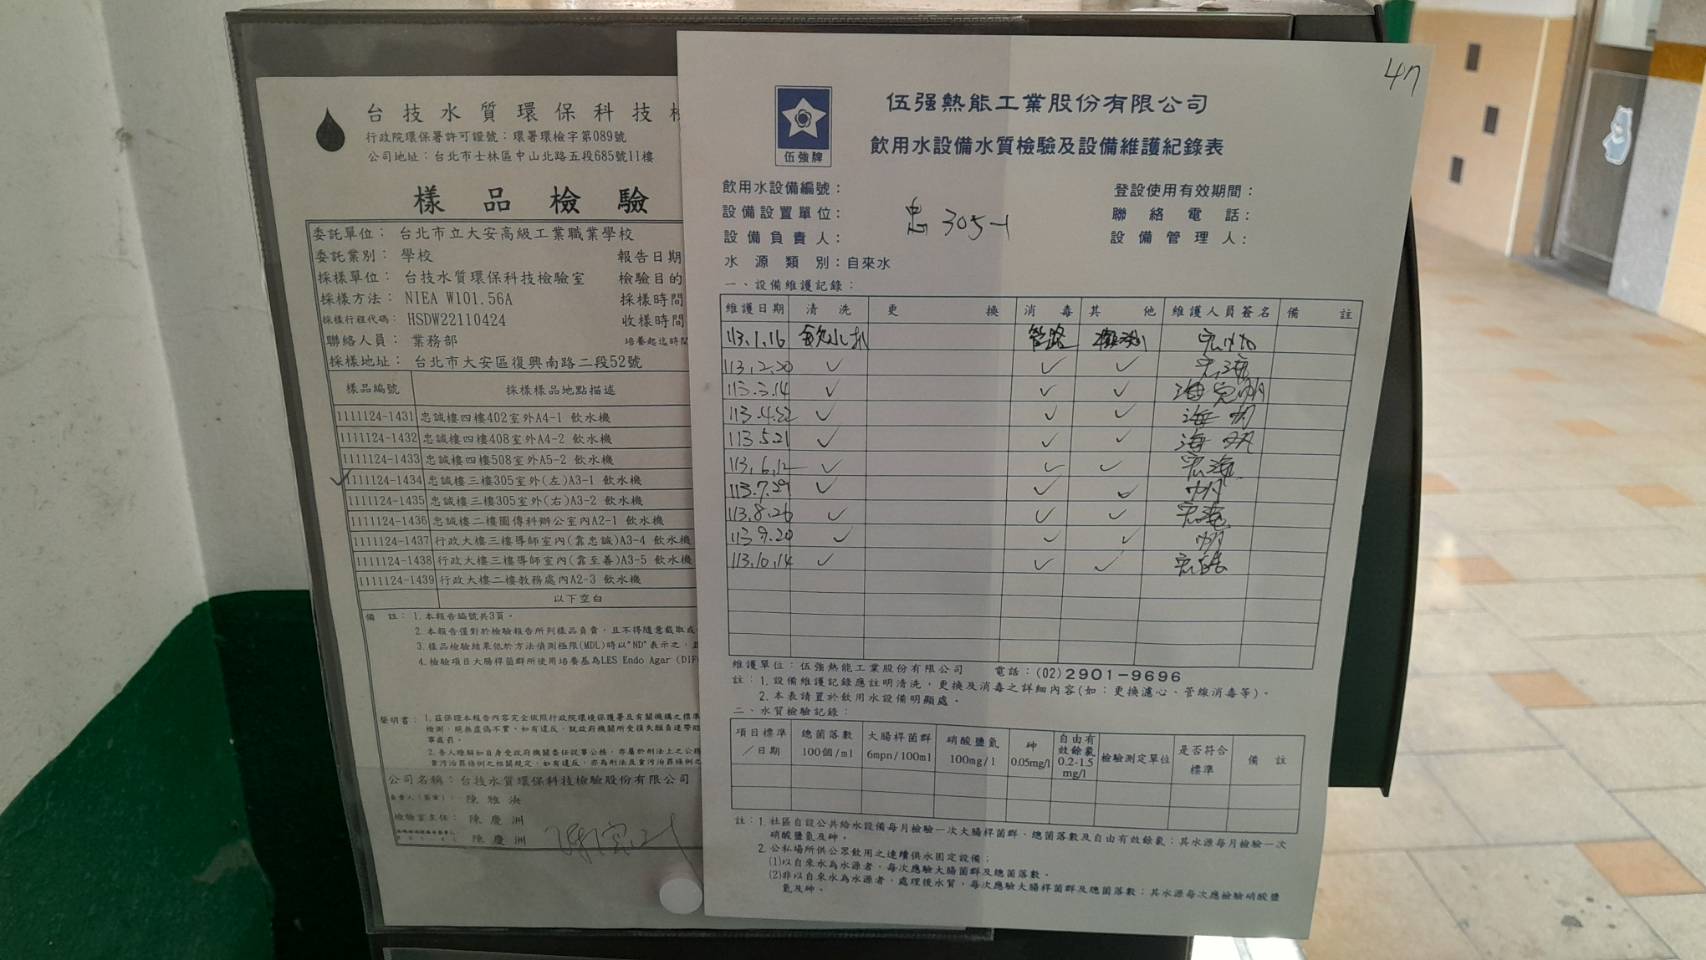 台技水質環保科技
行政院環保署許可證號：環署環檢字第089號
公司地址：台北市士林區中山北路五段685號11樓
樣品檢驗
委託單位：台北市立大安高級工業職業學校
委託業別：學校
報告日期
採樣單位：台技水質環保科技檢驗室
檢驗目的
採樣方法：NIEA W101.56A
採樣時間
採樣行程代碼：HSDW22110424
收樣時間
聯絡人員：業務部
培養起迄時間
採樣地址：台北市大安區復興南路二段52號
樣品編號 採樣樣品地點描述
1111124-1431 忠誠樓四樓402室外A4-1 飲水機
1111124-1432 忠誠樓四樓408室外A4-2 飲水機
1111124-1433 忠誠樓四樓508室外A5-2 飲水機
1111124-1434 忠誠樓三樓305室外(左)A3-1 飲水機
1111124-1435 忠誠樓三樓305室外(右)A3-2 飲水機
1111124-1436 忠誠樓二樓圖傳科辦公室內A2-1 飲水機
1111124-1437 行政大樓三樓導師室內(靠忠誠)A3-4 飲水機
1111124-1438 行政大樓三樓導師室內(靠至善)A3-5 飲水機
1111124-1439 行政大樓二樓教務處內A2-3 飲水機
以下空白
備 註：1.本報告編號共3頁。
2.本報告僅對於檢驗報告所列樣品負責，且不得隨意截取或
3.樣品檢驗結果低於方法偵測極限(MDL)時以"ND"表示之，
4.檢驗項目大腸桿菌群所使用培養基為LES Endo Agar
聲明書：1.茲保證本報告內容完全依照行政院環境保護署及有關機構之標準
公司名稱：台技水質環保科技檢驗股份有限公司
檢驗室主任：陳慶洲
陳慶洲
47
伍強牌
伍強熱能工業股份有限公司
飲用水設備水質檢驗及設備維護紀錄表
飲用水設備編號：
登設使用有效期間：
設備設置單位：
忠 305-1
聯絡電話：
設備負責人：
設備管理人：
水源類別：自來水
一、設備維護記錄：
維護日期 清洗 更換 消毒 其他 維護人員簽名 備註
113.1.16 管路
113.2.20 ✓ ✓ ✓
113.3.14 ✓ ✓ ✓
113.4.22 ✓ ✓ ✓
113.5.21 ✓ ✓ ✓
113.6.12 ✓ ✓ ✓
113.7.29 ✓ ✓ ✓
113.8.26 ✓ ✓ ✓
113.9.20 ✓ ✓ ✓
113.10.14 ✓ ✓ ✓
維護單位：伍強熱能工業股份有限公司 電話：(02)2901-9696
註：1.設備維護記錄應註明清洗，更換及消毒之詳細內容(如：更換濾心、管線消毒等)。
2.本表請置於飲用水設備明顯處。
二、水質檢驗記錄：
項目標準／日期 總菌落數100個/ml 大腸桿菌群6mpn/100ml 硝酸鹽氮100mg/l 砷0.05mg/l 自由有效餘氯0.2-1.5mg/l 檢驗測定單位 是否符合標準 備註
註：1.社區自設公共給水設備每月檢驗一次大腸桿菌群、總菌落數及自由有效餘氯；其水源每月檢驗一次
硝酸鹽氮及砷。
2.公私場所供公眾飲用之連續供水固定設備：
(1)以自來水為水源者，每次應驗大腸桿菌群及總菌落數。
(2)非以自來水為水源者，處理後水質，每次應檢驗大腸桿菌群及總菌落數；其水源每次應檢驗硝酸鹽
氮及砷。